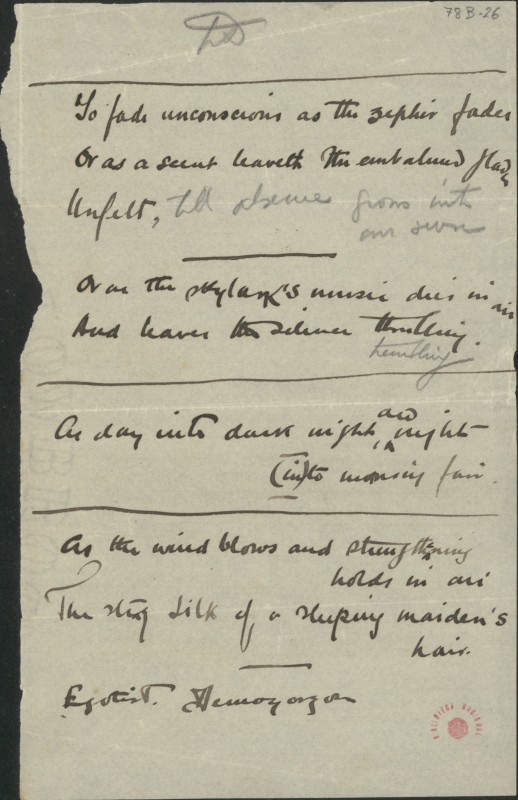 78B-26
To fade unconscious as the zephir fades
Or as a scent leaveth the embalmed glade
Unfelt, till absence grows into
our sense
Or as the skylark's music dies in air
And leaves the silence thrilling.
trembling
As day into dark night, and night
(in)to morning fair.
As the wind blows and strengthening
holds in air
The silk of a sleeping maiden's
hair.
Egotist. Demogorgon
BIBLIOTECA NACIONAL